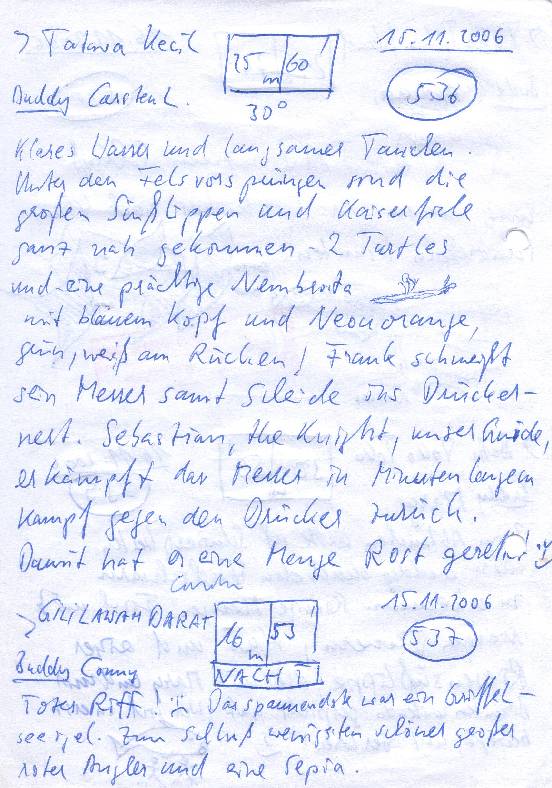 > Tatawa Kecil 25 m 60' 15.11.2006
Buddy Carsten L. 30° 536
Klares Wasser und langsames Tauchen.
Unter den Felsvorsprüngen sind die
großen Süßlippen und Kaiserfische
ganz nah gekommen. 2 Turtles
und eine prächtige Nembrota
mit blauem Kopf und Neonorange,
grün, weiß am Rücken! Frank schmeißt
sein Messer samt Scheide ins Drücker-
nest. Sebastian, the Knight, unser Guide,
erkämpft das Messer in Minutenlangem
Kampf gegen den Drücker zurück.
Damit hat er eine Menge Rost gerettet!
> GILI LAWAH DARAT 16 m 53' 15.11.2006
Buddy Conny NACHT 537
Totes Riff! :( Das spannendste war ein Griffel-
seeigel. Zum Schluß wenigstens schöner großer
roter Angler und eine Sepia.